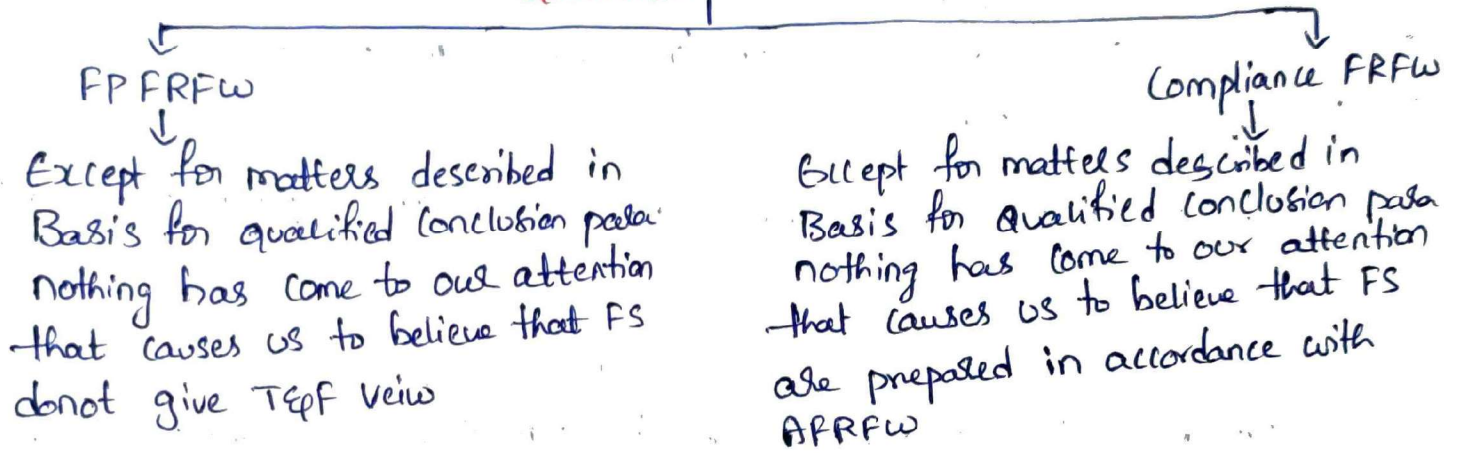 FP FRFW
Except for matters described in
Basis for qualified Conclusion para
nothing has come to our attention
that causes us to believe that FS
donot give T&F veiw
Compliance FRFW
Except for matters described in
Basis for Qualified Conclusion para
nothing has come to our attention
that causes us to believe that FS
are prepared in accordance with
AFRFW